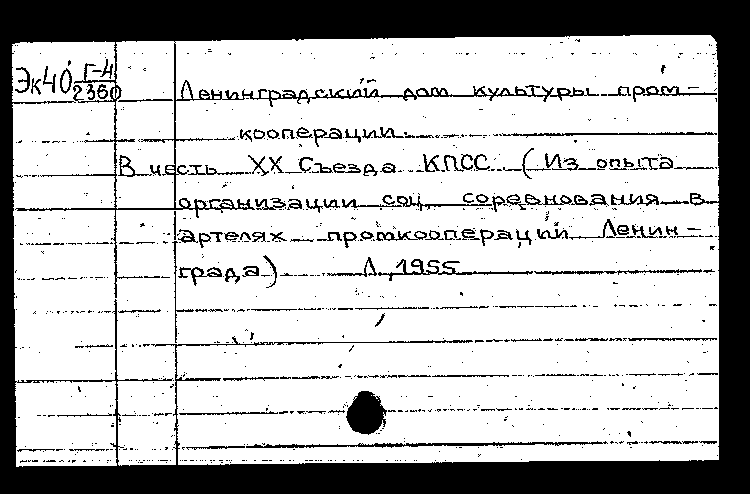 Эк40 Г-4/2360
Ленинградский дом культуры пром-
кооперации.
В честь XX Съезда КПСС. (Из опыта
организации соц. соревнования в
артелях промкооперации Ленин-
града) Л., 1955